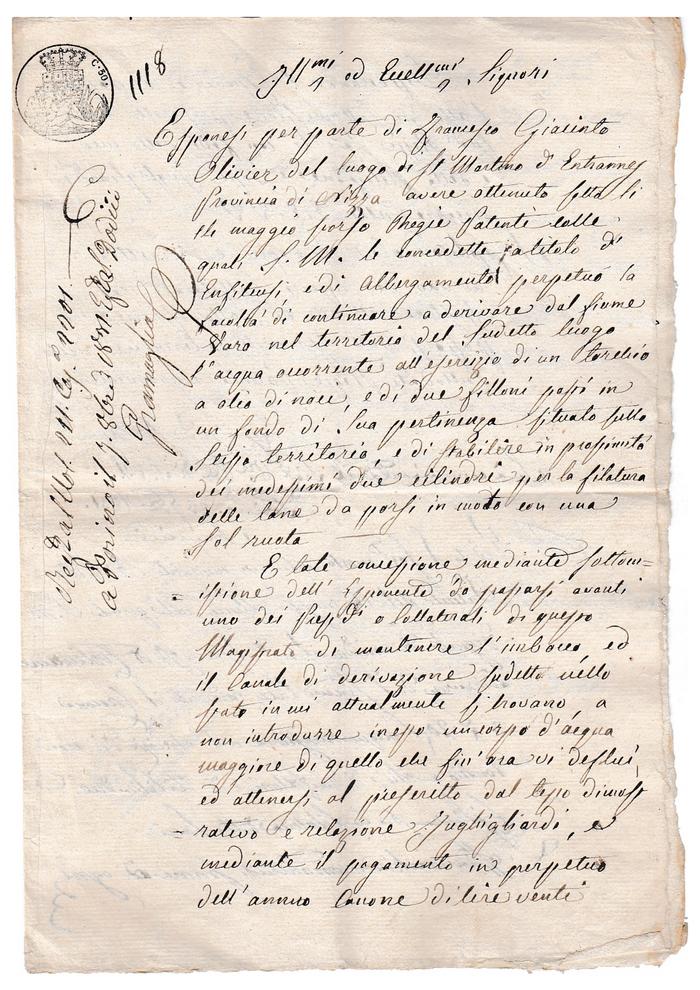 C. 50
1118
Ill.mi ed Eccell.mi Signori
Esponesi per parte di Francesco Giacinto
Olivier del luogo di St Martino d'Entrannes
Provincia di Nizza avere ottenuto sotto li
maggio scorso Regie Patenti colle
quali S. M. le concedette a titolo d'
Enfiteusi, e di Albergamento perpetuo la
facoltà di continuare a derivare dal fiume
Varo nel territorio del sudetto luogo
l'acqua occorrente all'esercizio di un torchio
a olio di noci, e di due folloni posti in
un fondo di sua pertinenza situato sullo
stesso territorio, e di stabilire in prossimità
dei medesimi due cilindri per la filatura
delle lane da porsi in moto con una
sol ruota
E tale concessione mediante sottom=
=issione dell'Esponente da passarsi avanti
uno dei Presid.ti o Collaterali di questo
Magistrato di mantenere l'imbocco, ed
il Canale di derivazione sudetto nello
stato in cui attualmente si trovano, a
non introdurre in esso un corpo d'acqua
maggiore di quello che fin'ora vi defluì,
ed attenersi al prescritto dal tipo dimost
=rativo e relazione Jughigliardi, e
mediante il pagamento in perpetuo
dell'annuo Canone di lire venti
a Torino il 7. 8bre 1841. dodici
Gramaglia